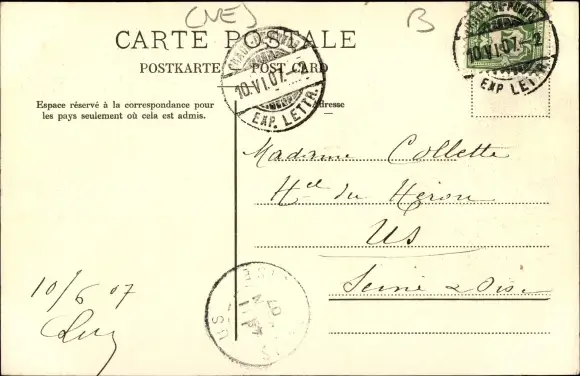 (NE) B
CARTE POSTALE
POSTKARTE POST CARD
Espace réservé à la correspondance pour
les pays seulement où cela est admis.
Adresse
10.VI.07.-2
EXP. LETTR.
10.VI.07.-2
EXP. LETTR.
Madame Collette
Hel du Héron
US
Seine & Oise
10/6 07
US